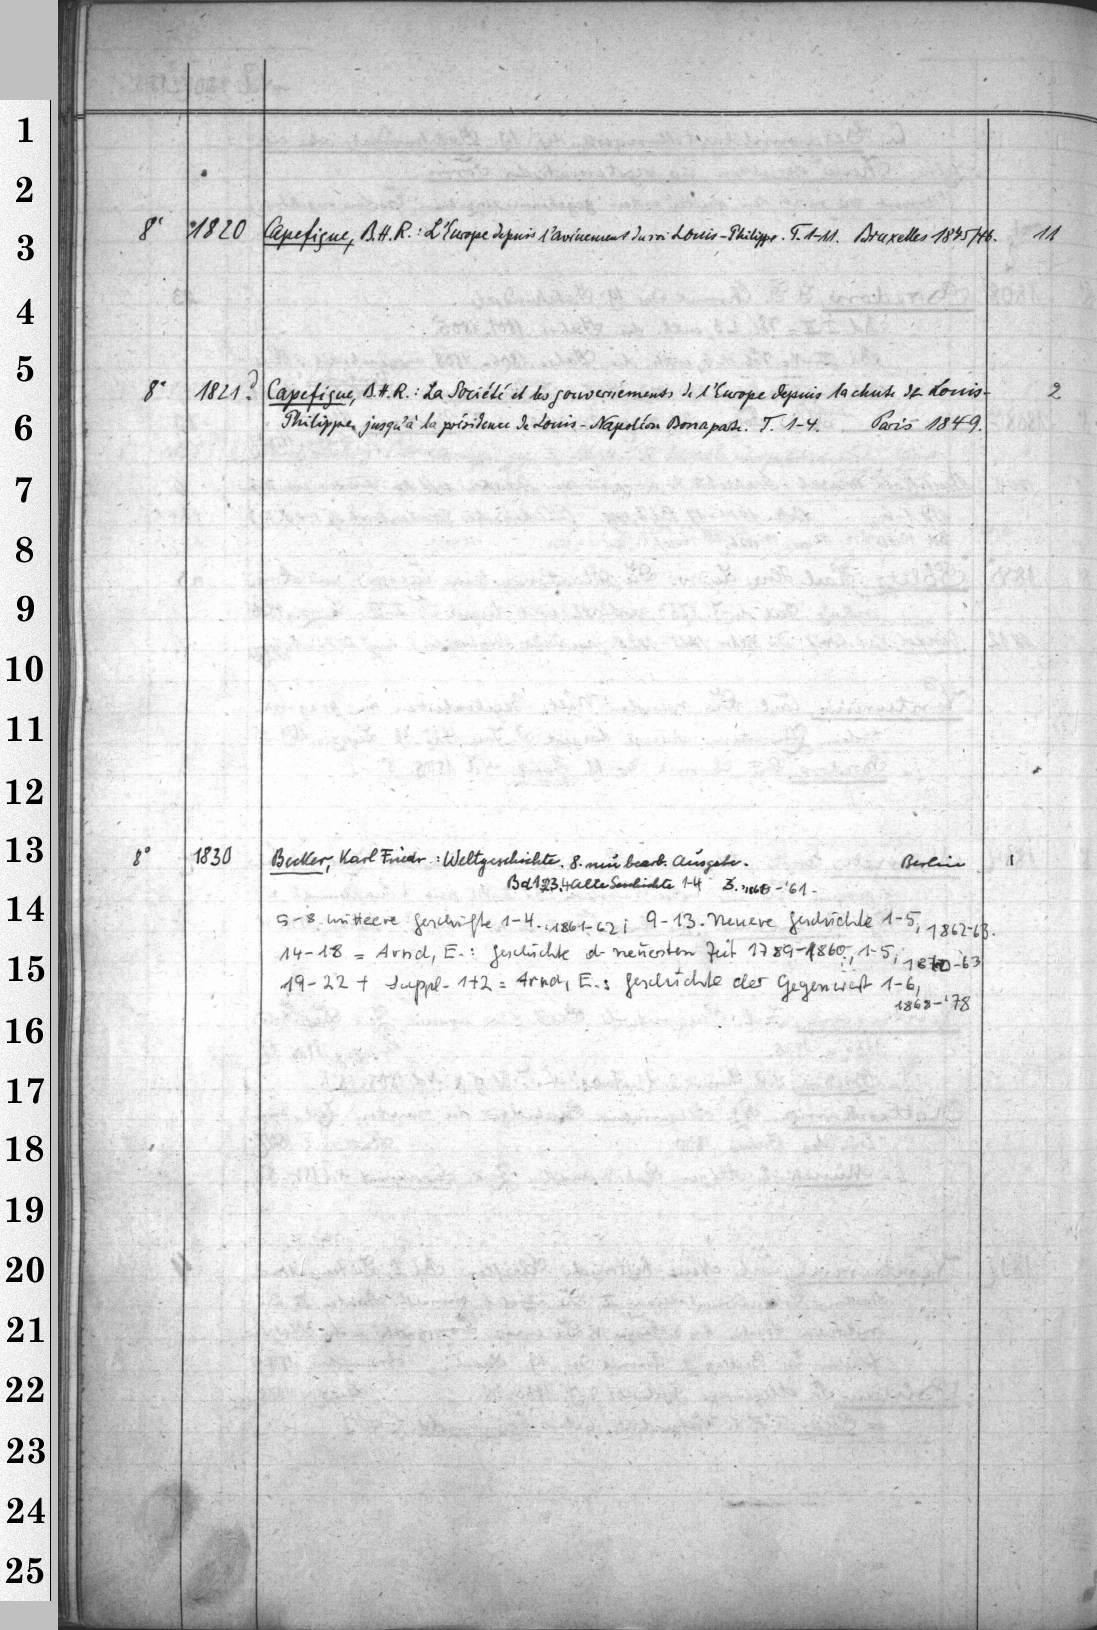 1
2
8° 1820 Capefigue, B.H.R.: L'Europe depuis l'avènement du roi Louis-Philippe. T. 1-11. Bruxelles 1845/46. 11
3
4
5
8° 1821? Capefigue, B.H.R.: La Société et les gouvernements de l'Europe depuis la chute de Louis- 2
6 Philippe, jusqu'à la présidence de Louis-Napoléon Bonaparte. T. 1-4. Paris 1849.
7
8
9
10
11
12
13
8° 1830 Becker, Karl Friedr.: Weltgeschichte. 8. neu bearb. Ausgabe. Berlin 1
Bd 1,2,3,4 Alte Geschichte 1-4 -'61.
14
5-8. mittlere Geschichte 1-4. 1861-62; 9-13. Neuere Geschichte 1-5, 1862-63.
14-18 = Arnd, E.: Geschichte d. neuesten Zeit 1789-1860, 1-5, -63
15
19-22 + Suppl. 1+2 = Arnd, E.: Geschichte der Gegenwart 1-6,
1868-'78
16
17
18
19
20
21
22
23
24
25